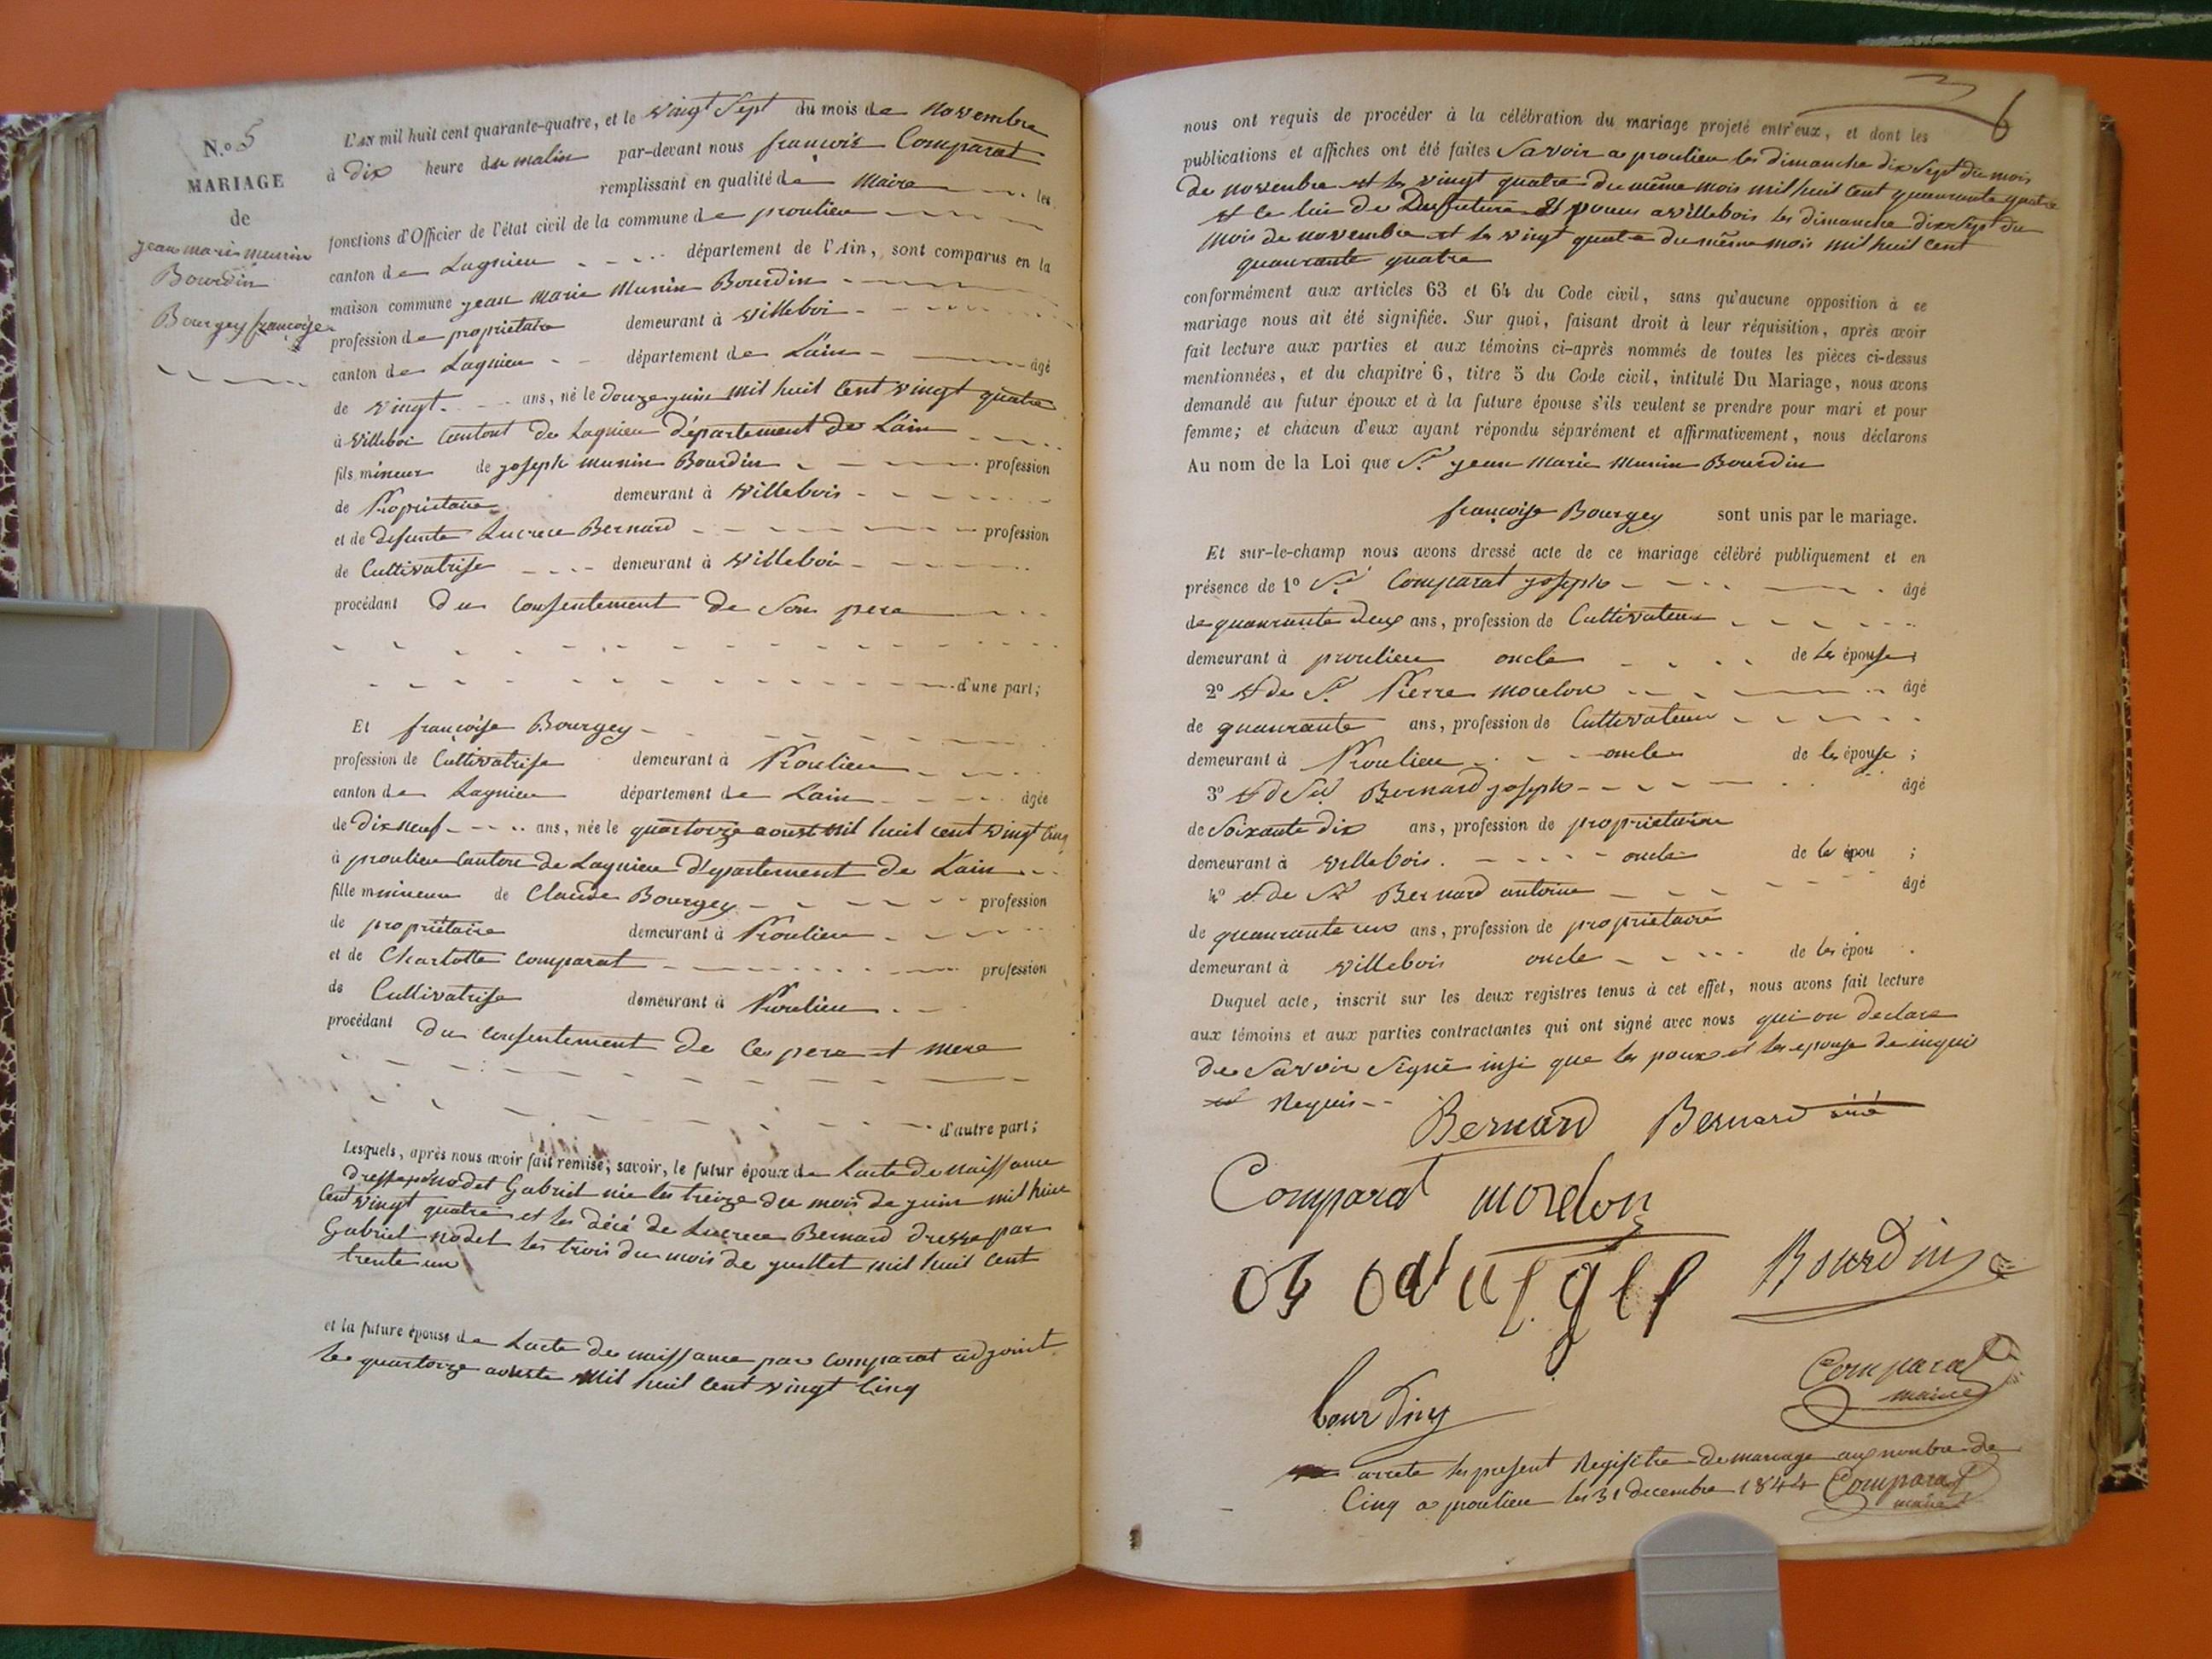 N.o 5
MARIAGE
de
jean marie munin
Bourdin
Bourgey françoise
L'an mil huit cent quarante-quatre, et le vingt Sept du mois de Novembre
à dix heure du matin par-devant nous françois Comparat
remplissant en qualité de Maire les
fonctions d'Officier de l'état civil de la commune de proulieu
canton de Lagnieu département de l'Ain, sont comparus en la
maison commune jean Marie Munin Bourdin
profession de propriétaire demeurant à villeboi
canton de Lagnieu département de Lain âgé
de vingt ans, né le douze juin mil huit Cent vingt quatre
à villeboi Cantont de Lagnieu département de Lain
fils mineur de joseph munin Bourdin profession
de Propriétaire demeurant à villebois
et de defunte Lucrece Bernard profession
de Cultivatrise demeurant à villeboi
procédant du Consentement de Son pere
d'une part;
Et françoise Bourgey
profession de Cultivatrise demeurant à Proulieu
canton de Lagnieu département de Lain âgée
de dix neuf ans, née le quartorze aoust mil huit cent vingt cinq
à proulieu Canton de Lagnieu département de Lain
fille mineure de Claude Bourgey profession
de propriétaire demeurant à Proulieu
et de Charlotte Comparat profession
de Cultivatrise demeurant à Proulieu
procédant du consentement de Ces pere et mere
d'autre part;
Lesquels, après nous avoir fait remise, savoir, le futur époux de Lacte de Naissance
Nodet Gabriel née les treize du mois de juin mil huit
Cent vingt quatre et les décé de Lucrece Bernard dressé par
Gabriel nodet les trois du mois de juillet mil huit Cent
trente un
et la future épouse de Lacte de naissance par Comparat adjoint
le quartorze aouste Mil huit Cent vingt Cinq
6
nous ont requis de procéder à la célébration du mariage projeté entr'eux, et dont les
publications et affiches ont été faites Savoir a proulieu les dimanche dix Sept du mois
de novembre et les vingt quatre du même mois mil huit Cent quaurante quatre
et Ce lui de futur poux a villebois les dimanche dix Sept du
Mois de novembre et les vingt quatre du même mois mil huit Cent
quaurante quatre
conformément aux articles 63 et 64 du Code civil, sans qu'aucune opposition à ce
mariage nous ait été signifiée. Sur quoi, faisant droit à leur réquisition, après avoir
fait lecture aux parties et aux témoins ci-après nommés de toutes les pièces ci-dessus
mentionnées, et du chapitre 6, titre 5 du Code civil, intitulé Du Mariage, nous avons
demandé au futur époux et à la future épouse s'ils veulent se prendre pour mari et pour
femme; et chacun d'eux ayant répondu séparément et affirmativement, nous déclarons
Au nom de la Loi que Sr jean Marie Munin Bourdin
françoise Bourgey sont unis par le mariage.
Et sur-le-champ nous avons dressé acte de ce mariage célébré publiquement et en
présence de 1º Sr Comparat joseph âgé
de quaurante deux ans, profession de Cultivateur
demeurant à proulieu oncle de les épouse;
2º et de Sr Pierre morelon âgé
de quaurante ans, profession de Cultivateur
demeurant à Proulieu oncle de les épouse;
3º et de Sr Bernard joseph âgé
de Soixante dix ans, profession de propriétaire
demeurant à villebois. oncle de les épou;
4º et de Sr Bernard antoine âgé
de quaurante un ans, profession de propriétaire
demeurant à villebois oncle de les épou.
Duquel acte, inscrit sur les deux registres tenus à cet effet, nous avons fait lecture
aux témoins et aux parties contractantes qui ont signé avec nous qui on declare
de Savoir Signé insi que les poux et les epouse de inqui
Requis
Bernard Bernard
Comparat morelon
Bourdin
Comparat
maire
bourdin
arrete les present Registre de mariage au nombre de
Cinq a proulieu les 31 decembre 1844 Comparat
maire